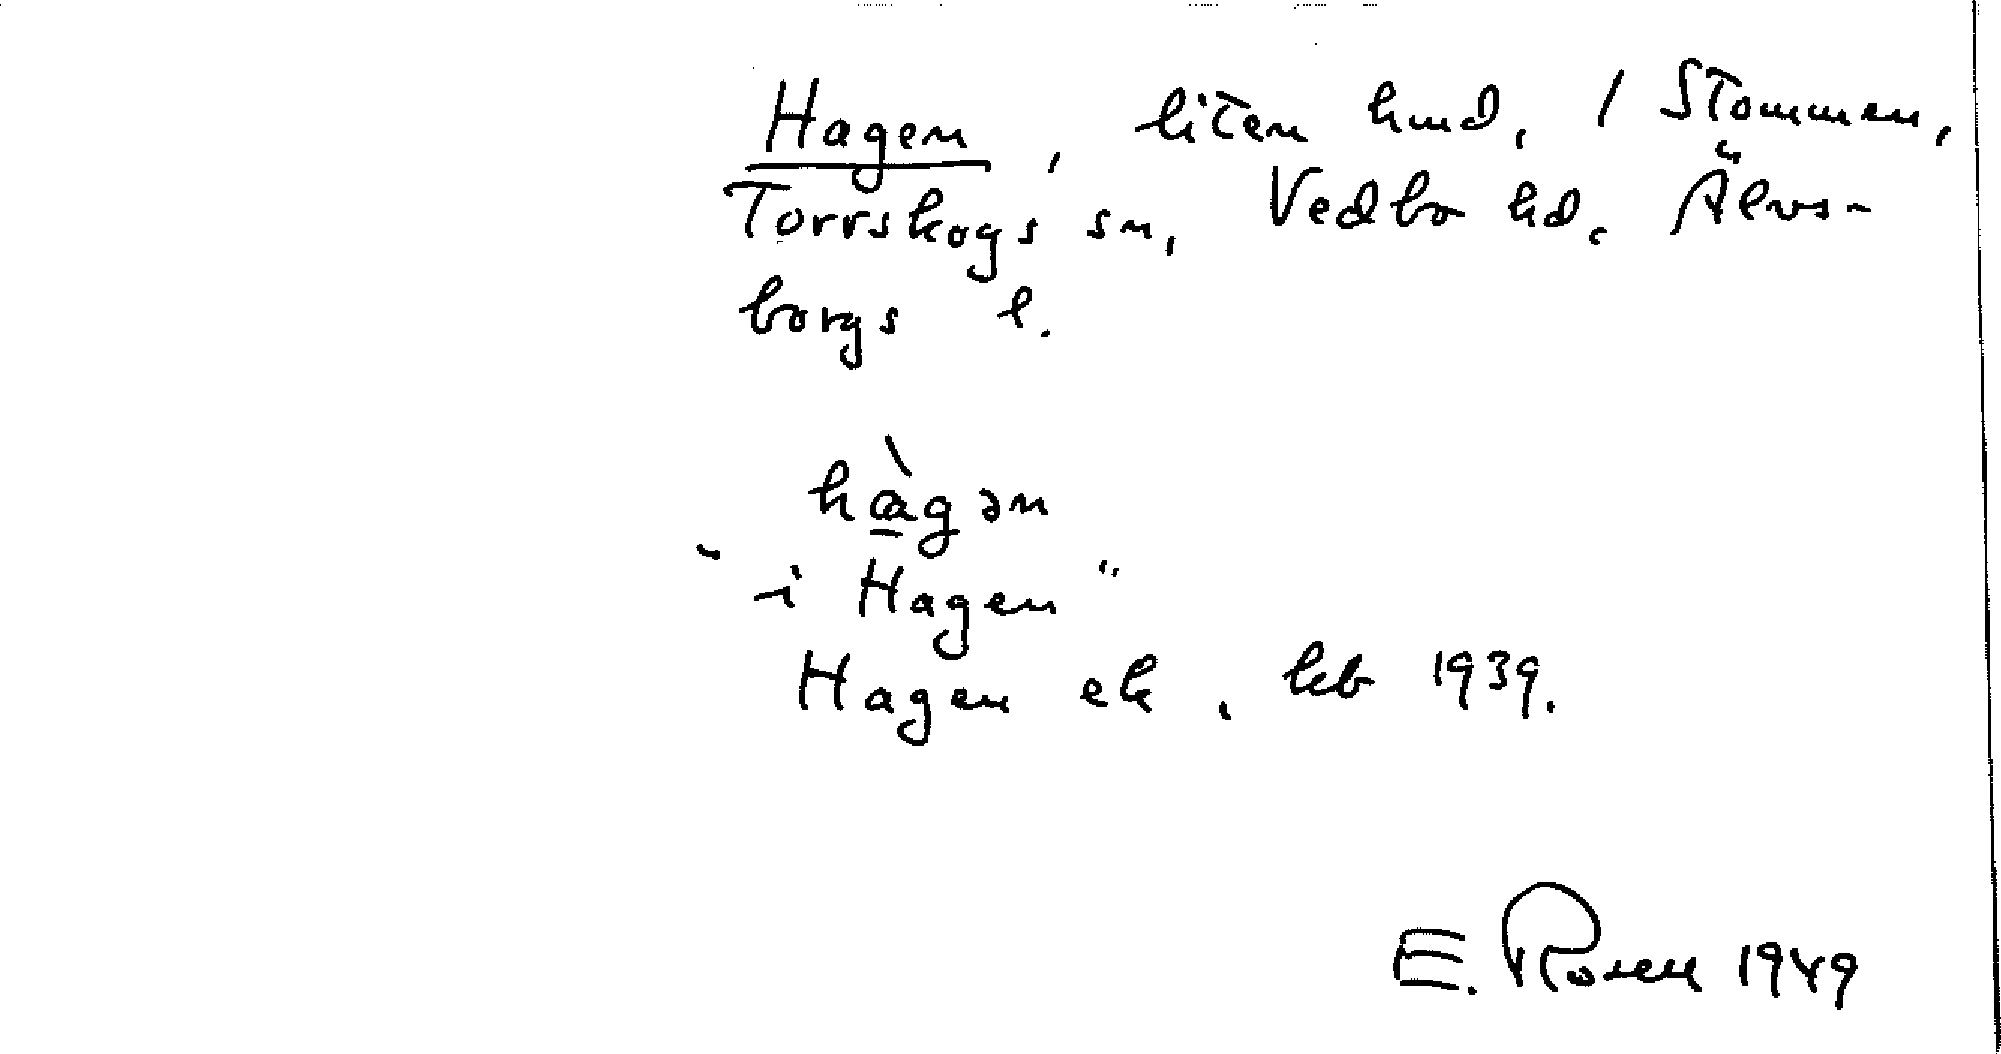 Hagen, liten hmd, / Stommen,
Torrskogs sn, Vedbo hd. Älvs-
borgs l.
hà̱gən
"i Hagen"
Hagen ek, kb 1939.
E. Rosell 1949